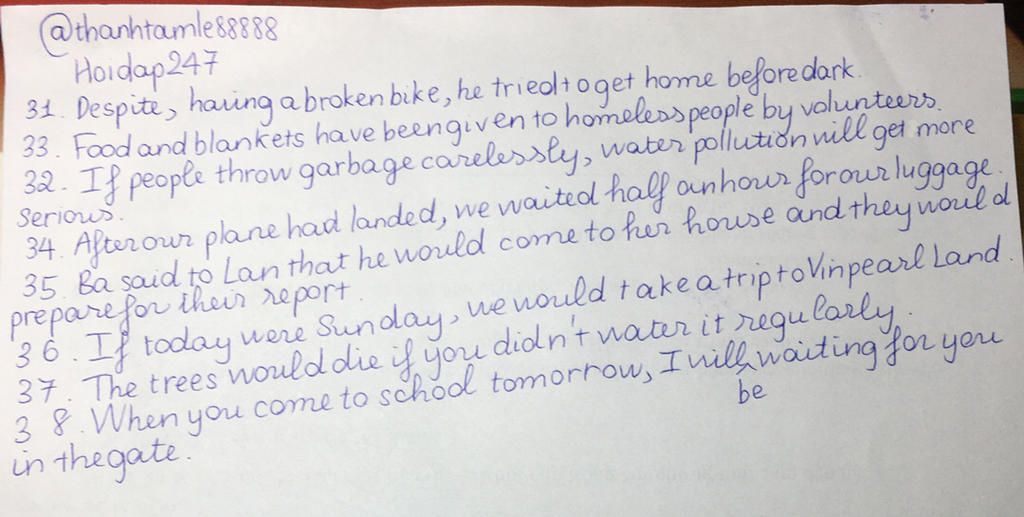 @thanhtamle88888
Hoidap247
31. Despite, having a broken bike, he tried to get home before dark.
33. Food and blankets have been given to homeless people by volunteers.
32. If people throw garbage carelessly, water pollution will get more
serious.
34. After our plane had landed, we waited half an hour for our luggage.
35. Ba said to Lan that he would come to her house and they would
prepare for their report.
36. If today were Sunday, we would take a trip to Vinpearl Land.
37. The trees would die if you didn't water it regularly.
38. When you come to school tomorrow, I will be waiting for you
in the gate.